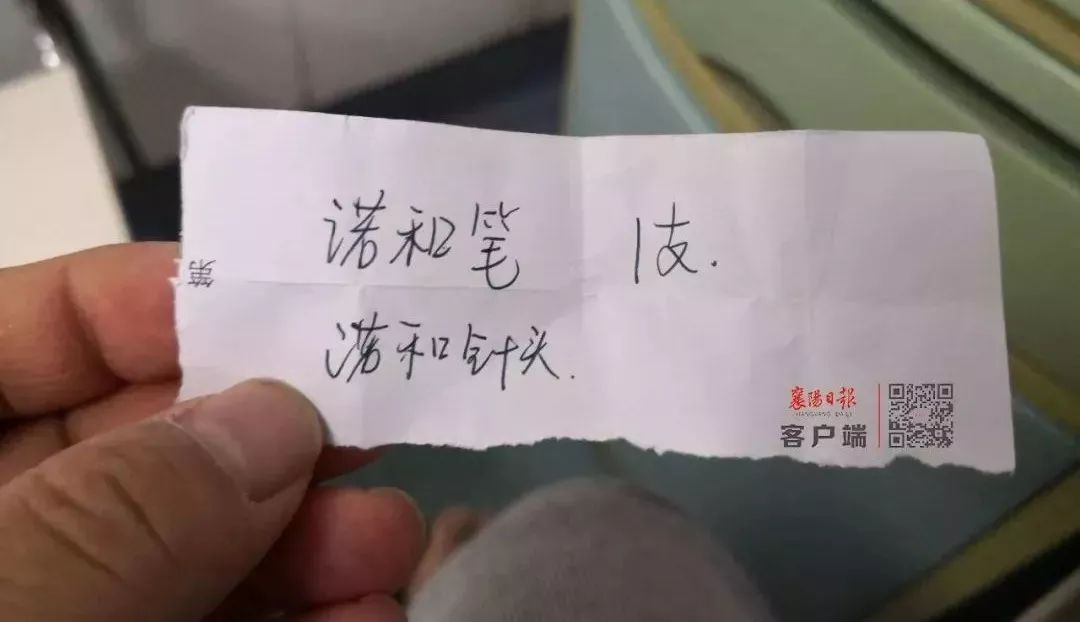 诺和笔 1支.
诺和针头.
第
襄阳日报
XIANGYANG DAILY
客户端